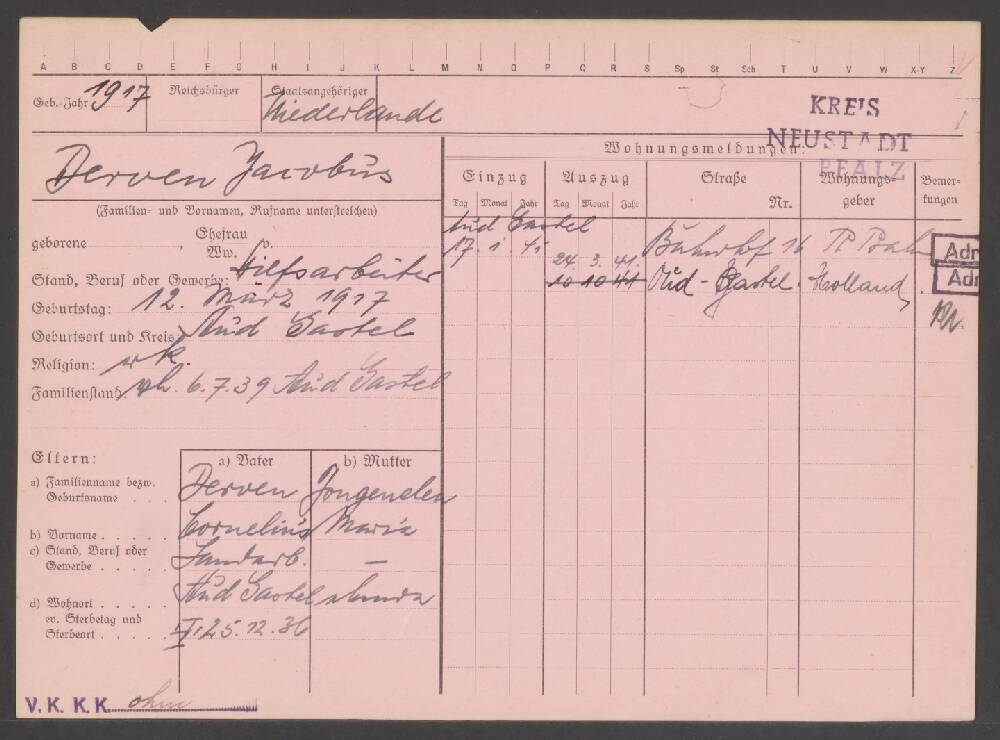 A B C D E F G H I J K L M N O P Q R S Sp St Sch T U V W X-Y Z
Geb.-Jahr 1917 Reichsbürger Staatsangehöriger
Niederlande
KREIS
NEUSTADT
PFALZ
Derven Jacobus
(Familien- und Vornamen, Rufname unterstreichen)
geborene , Ehefrau
Ww.
Stand, Beruf oder Gewerbe: Hilfsarbeiter
Geburtstag: 12. März 1917
Geburtsort und Kreis: Aud Gastel
Religion: rk.
Familienstand: vh. 6.7.39 Aud Gastel
Wohnungsmeldungen:
Einzug Auszug Straße Nr. Wohnungsgeber Bemerkungen
Tag Monat Jahr Tag Monat Jahr
Aud Gastel
17. 1. 41 24. 3. 41. Bahnhof 16
10 10 41 Aud-Gastel. Holland
Adr
Adr
Eltern:
a) Vater b) Mutter
a) Familienname bezw. Geburtsname . . . Derven Jongenelen
b) Vorname . . . . . Cornelius Maria
c) Stand, Beruf oder Gewerbe . . . . . Landarb. —
d) Wohnort . . . . . Aud Gastel ebenda
ev. Sterbetag und Sterbeort . . . . . 25.12.36
V. K. K. K. ohne